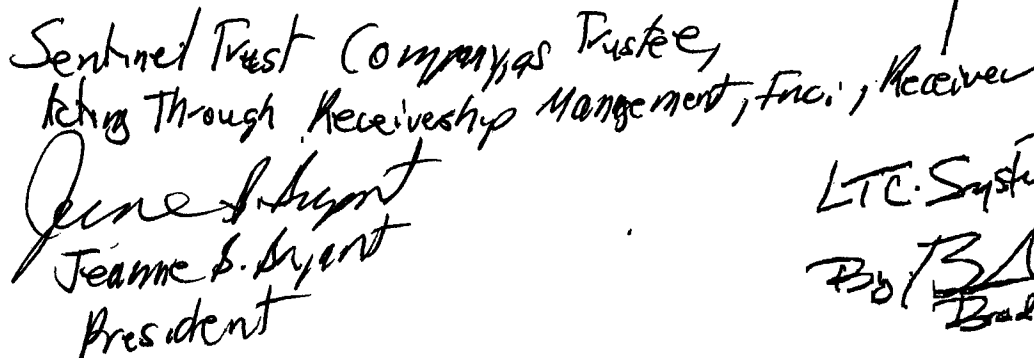 Sentinel Trust Company, as Trustee,
Acting Through Receivership Management, Inc., Receiver
Jeanne B. Bryant
Jeanne B. Bryant
President
LTC. Syst
By:
Brad